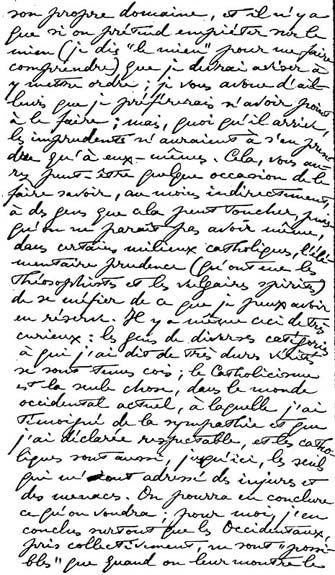 son propre domaine, et il n'y a
que si on prétend empiéter sur le
mien (je dis "le mien" pour me faire
comprendre) que je devrai aviser à
y mettre ordre ; je vous avoue d'ail-
leurs que je préférerais n'avoir point
à le faire ; mais, quoi qu'il arrive,
les imprudents n'auraient à s'en pren-
dre qu'à eux-mêmes. Cela, vous au-
rez peut-être quelque occasion de le
faire savoir, au moins indirectement,
à des gens que cela peut toucher, puis-
qu'on ne paraît pas avoir même,
dans certains milieux catholiques, l'élé-
mentaire prudence (qu'ont eue les
théosophistes et les vulgaires spirites)
de se méfier de ce que je peux avoir
en réserve. Il y a même ceci de très
curieux : les gens de diverses catégories
à qui j'ai dit de très dures vérités
se sont tenus cois ; le Catholicisme
est la seule chose, dans le monde
occidental actuel, à laquelle j'ai
témoigné de la sympathie et que
j'ai déclarée respectable, et les catho-
liques sont aussi, jusqu'ici, les seuls
qui m'aient adressé des injures et
des menaces. On pourra en conclure
ce qu'on voudra ; pour moi, j'en
conclus surtout que les Occidentaux,
pris collectivement, ne sont "possi-
bles" que quand on leur montre la